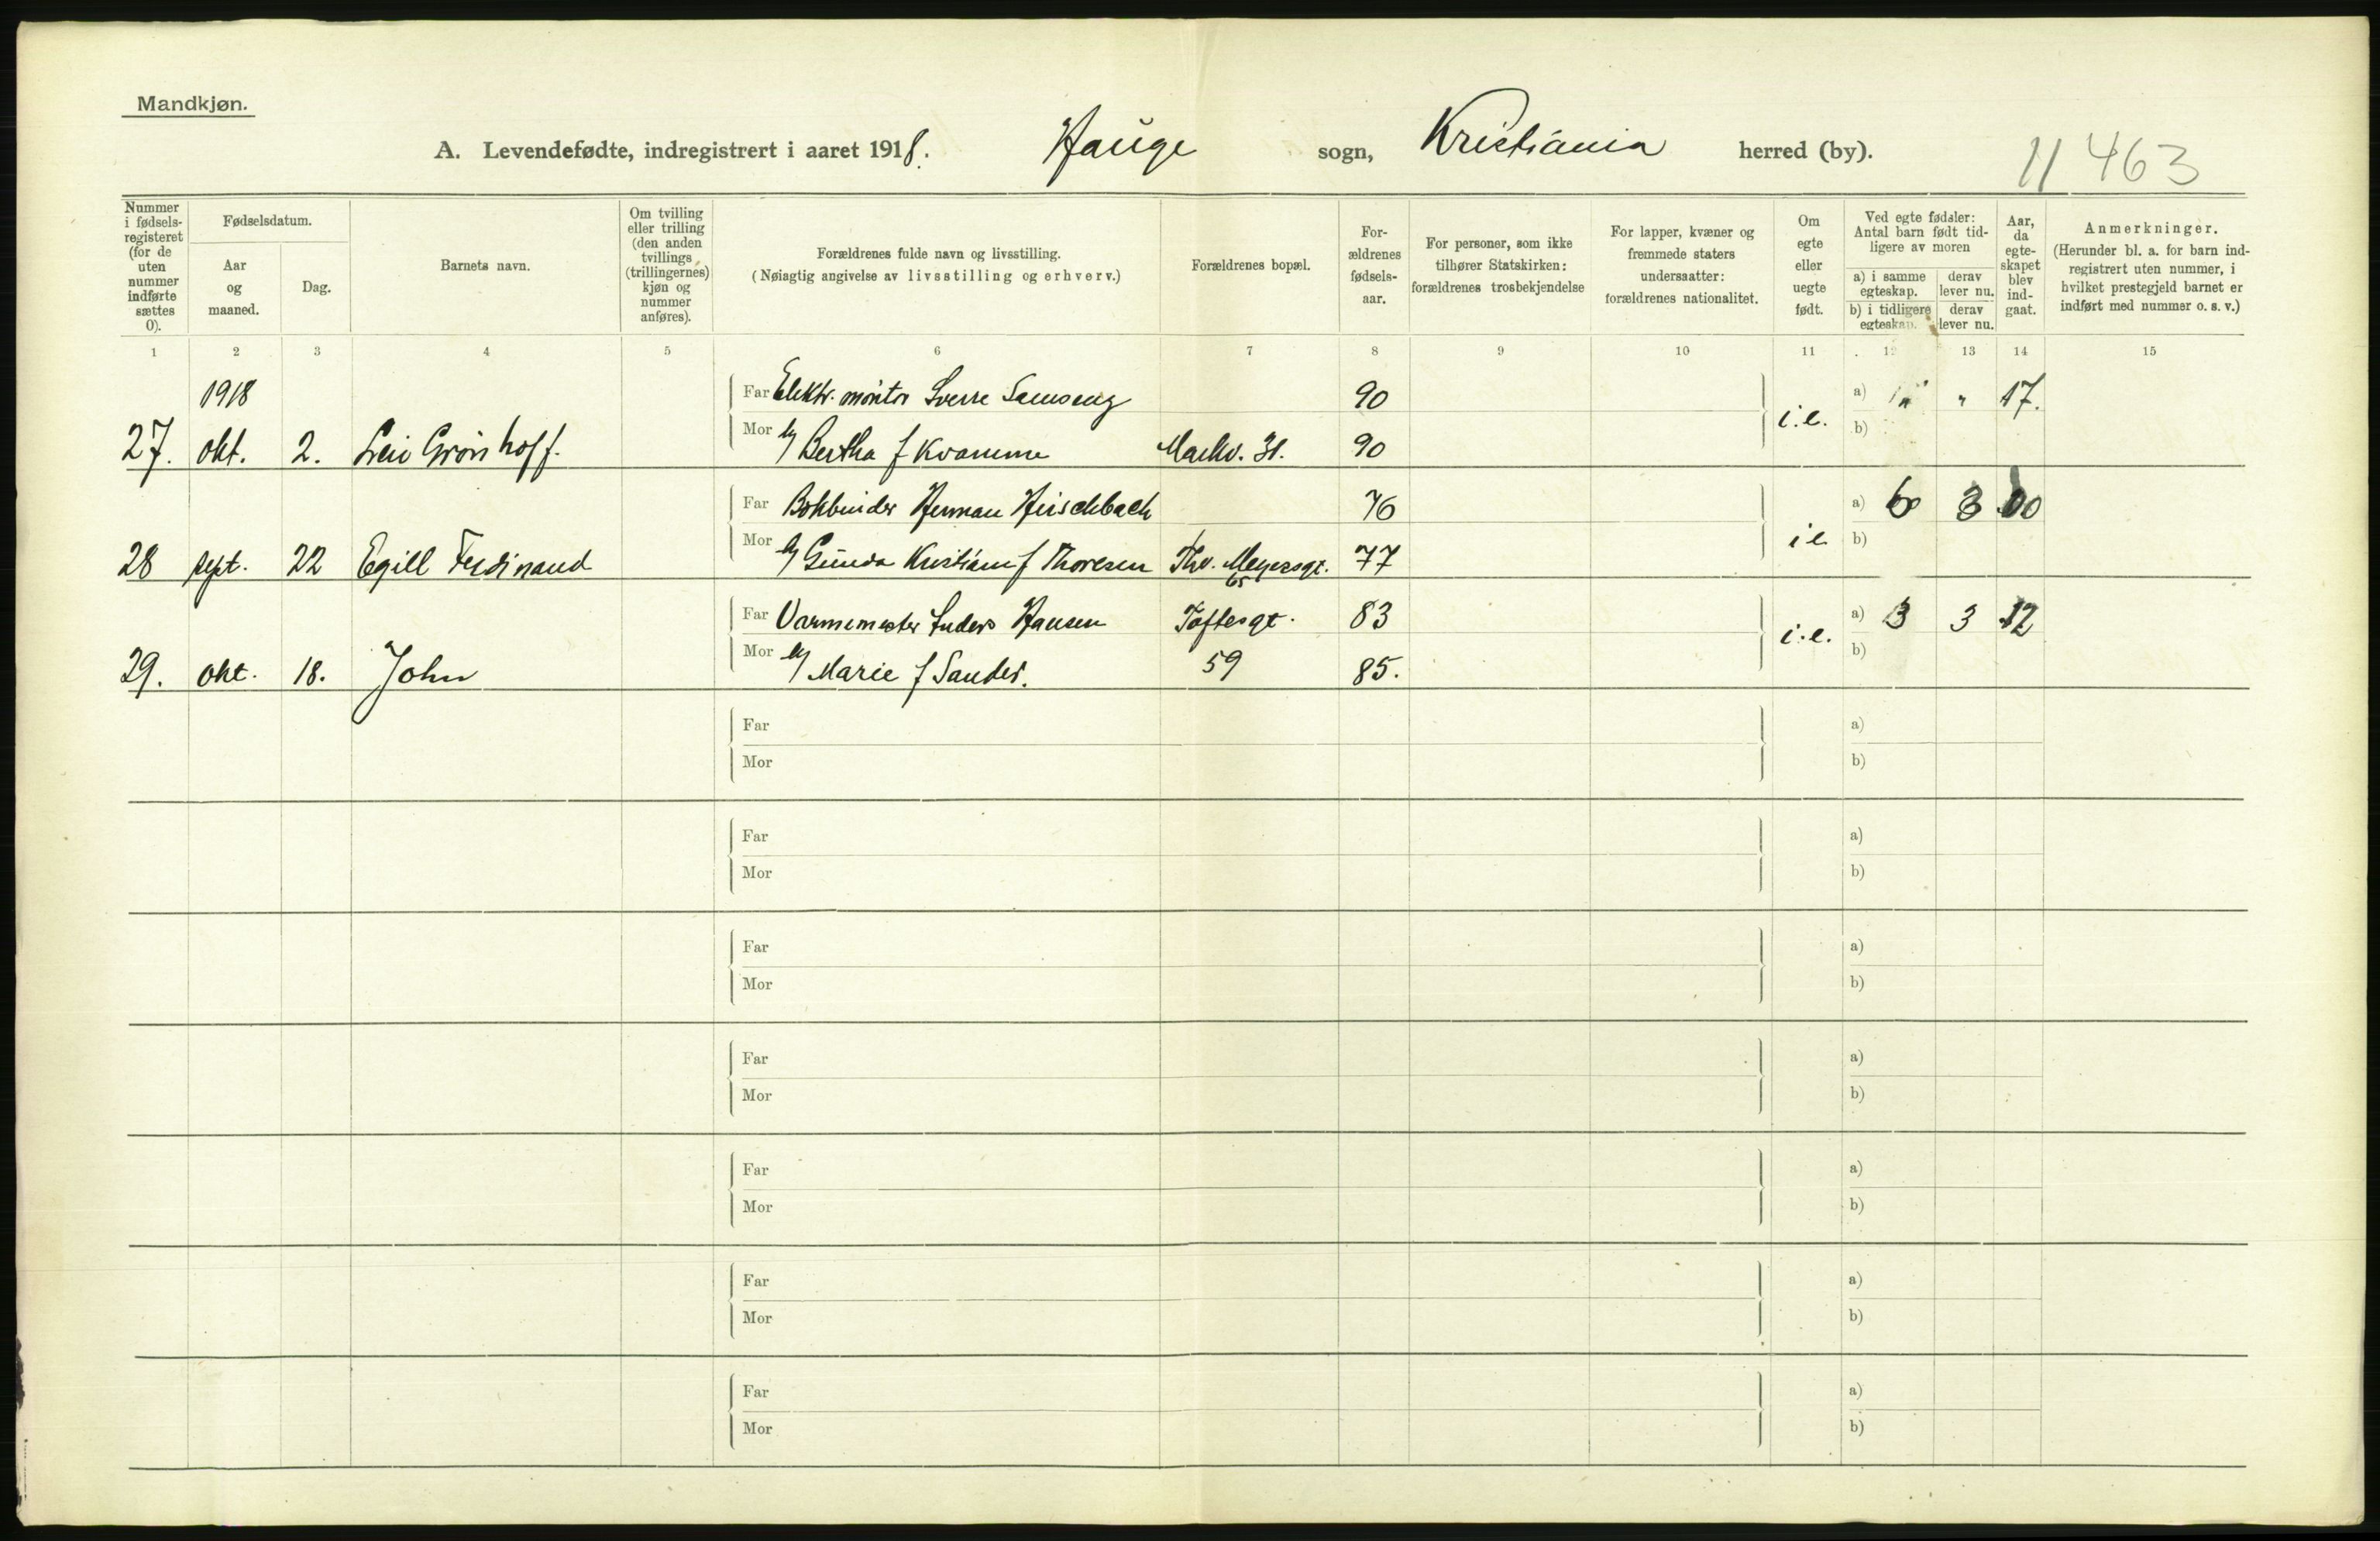 Mandkjøn.
A. Levendefødte, indregistrert i aaret 1918. Hauge sogn, Kristiania herred (by). 11 463
Nummer i fødselsregisteret (for de uten nummer indførte sættes 0).
Fødselsdatum.
Aar og maaned.
Dag.
Barnets navn.
Om tvilling eller trilling (den anden tvillings (trillingernes) kjøn og nummer anføres).
Forældrenes fulde navn og livsstilling.
(Nøiagtig angivelse av livsstilling og erhverv.)
Forældrenes bopæl.
Forældrenes fødselsaar.
For personer, som ikke tilhører Statskirken: forældrenes trosbekjendelse
For lapper, kvæner og fremmede staters undersaatter: forældrenes nationalitet.
Om egte eller uegte født.
Ved egte fødsler: Antal barn født tidligere av moren
a) i samme egteskap.
derav lever nu.
b) i tidligere egteskap.
derav lever nu.
Aar, da egteskapet blev indgaat.
Anmerkninger.
(Herunder bl. a. for barn indregistrert uten nummer, i hvilket prestegjeld barnet er indført med nummer o. s. v.)
1 2 3 4 5 6 7 8 9 10 11 12 13 14 15
1918 Far Elektr. montør Sverre Samseng 90 a) " " 17.
27. okt. 2. Grønhoff. Mor Bertha f Kvamme Markv. 31. 90 i.e. b)
Far Bokbinder Herman Hirschbach 76 a) 6 3 00
28 sept. 22 Egill Ferdinand Mor Gunda Kristiane f Thoresen Thv. Meyersgt. 65 77 i e b)
Far Varmemester Hansen Toftesgt. 83 a) 3 3 12
29. okt. 18. John Mor Marie f Sander. 59 85. i.e. b)
Far a)
Mor b)
Far a)
Mor b)
Far a)
Mor b)
Far a)
Mor b)
Far a)
Mor b)
Far a)
Mor b)
Far a)
Mor b)